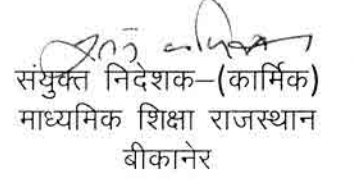 संयुक्त निदेशक–(कार्मिक)
माध्यमिक शिक्षा राजस्थान
बीकानेर